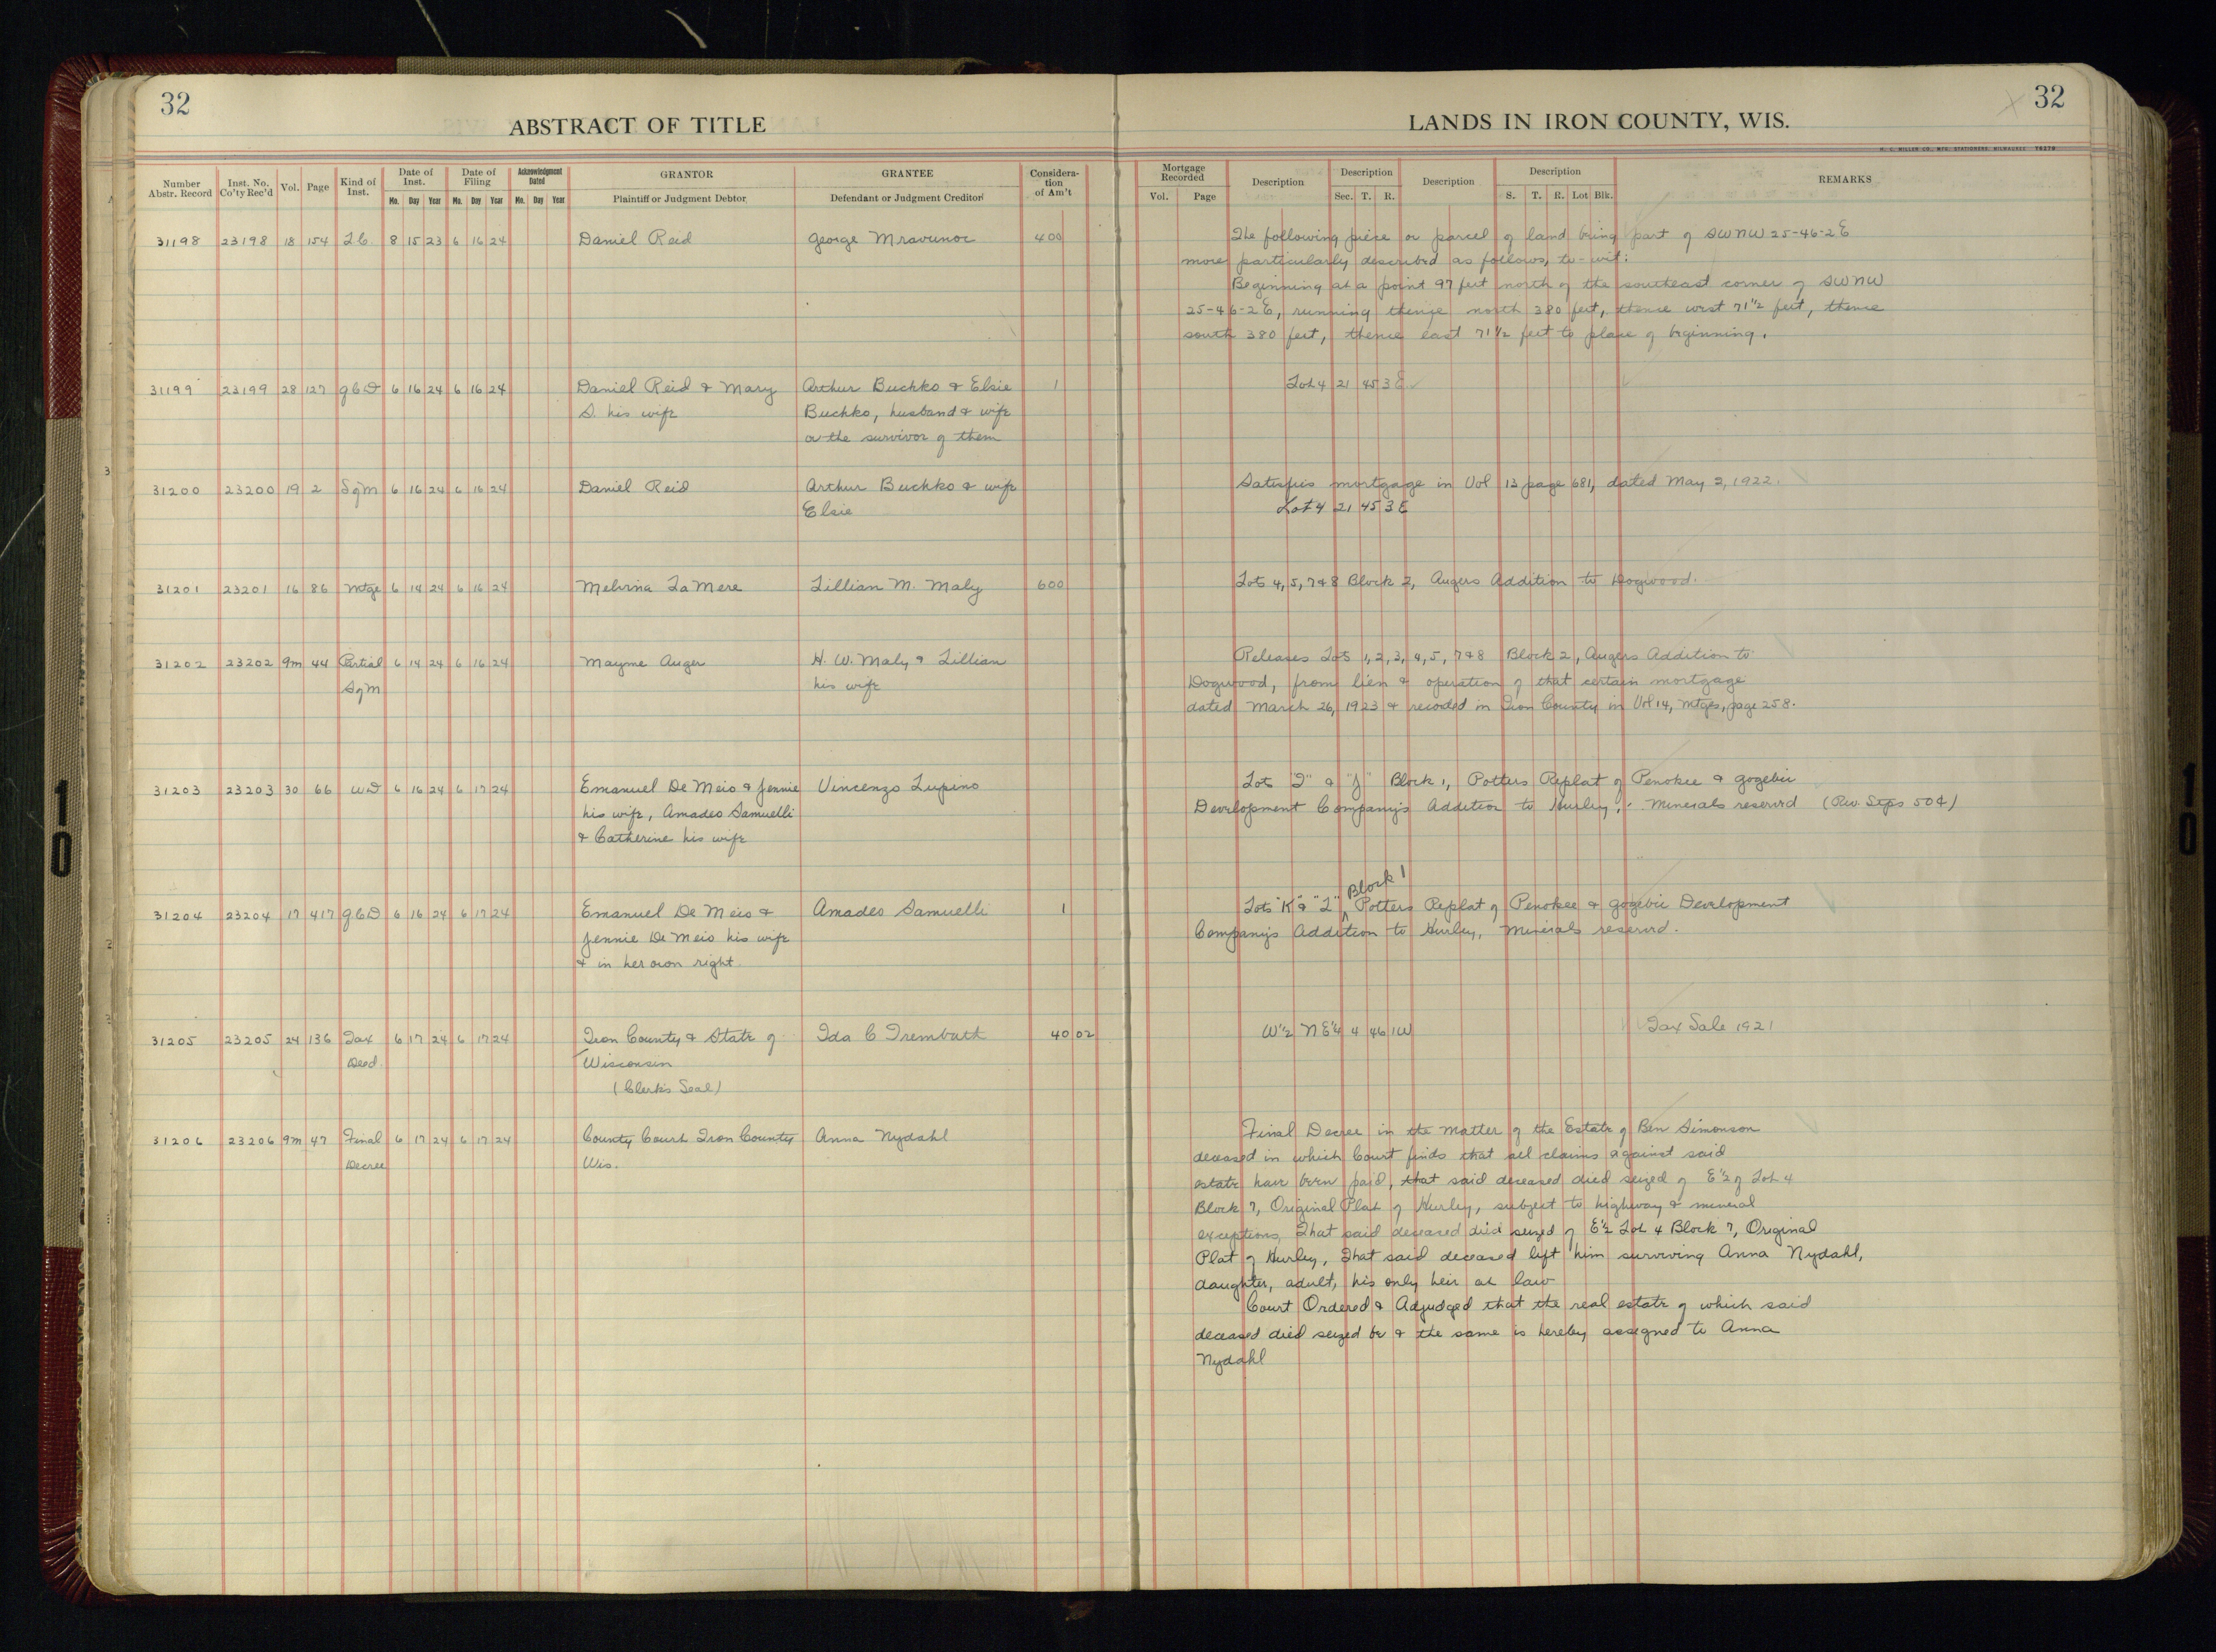 32
ABSTRACT OF TITLE
LANDS IN IRON COUNTY, WIS.
32
H. C. MILLER CO., MFG. STATIONERS, MILWAUKEE 76270
Number Abstr. Record Inst. No. Co'ty Rec'd Vol. Page Kind of Inst. Date of Inst. Mo. Day Year Date of Filing Mo. Day Year Acknowledgment Dated Mo. Day Year GRANTOR Plaintiff or Judgment Debtor GRANTEE Defendant or Judgment Creditor Considera-tion of Am't
Mortgage Recorded Vol. Page Description Description Sec. T. R. Description Description S. T. R. Lot Blk. REMARKS
31198 23198 18 154 LC. 8 15 23 6 16 24 Daniel Reid George Mravunoc 400 The following piece or parcel of land being part of SWNW 25-46-2E
more particularly described as follows, to-wit:
Beginning at a point 97 feet north of the southeast corner of SWNW
25-46-2E, running thence north 380 feet, thence west 71½ feet, thence
south 380 feet, thence east 71½ feet to place of beginning.
31199 23199 28 127 QCD 6 16 24 6 16 24 Daniel Reid & Mary Arthur Buchko & Elsie 1 Lot 4 21 45 3E
S. his wife Buchko, husband & wife
or the survivor of them
31200 23200 19 2 SqM 6 16 24 6 16 24 Daniel Reid Arthur Buchko & wife Satisfies mortgage in Vol 13 page 681, dated May 2, 1922.
Elsie Lot 4 21 45 3E
31201 23201 16 86 Mtge 6 14 24 6 16 24 Melvina LaMere Lillian M. Maly 600 Lots 4, 5, 7 & 8 Block 2, Augers Addition to Dogwood.
31202 23202 9m 44 Partial 6 14 24 6 16 24 Mayme Auger H. W. Maly & Lillian Releases Lots 1, 2, 3, 4, 5, 7 & 8 Block 2, Augers Addition to
SqM his wife Dogwood, from lien & operation of that certain mortgage
dated March 26, 1923 & recorded in Iron County in Vol 14, Mtges, page 258.
31203 23203 30 66 WD 6 16 24 6 17 24 Emanuel De Meio & Jennie Vincenzo Lupino Lots "I" & "J" Block 1, Potters Replat of Penokee & Gogebic
his wife, Amadeo Samuelli Development Company's Addition to Hurley, Minerals reserved (Rev. Stps 50¢)
& Catherine his wife
31204 23204 17 417 QCD 6 16 24 6 17 24 Emanuel De Meio & Amadeo Samuelli 1 Lots "K" & "L" Block 1 Potters Replat of Penokee & Gogebic Development
Jennie De Meio his wife Company's Addition to Hurley, Minerals reserved.
& in her own right.
31205 23205 24 136 Tax 6 17 24 6 17 24 Iron County & State of Ida C Trembath 40 02 W½ NE¼ 4 46 1W Tax Sale 1921
Deed. Wisconsin
(Clerk's Seal)
31206 23206 9m 47 Final 6 17 24 6 17 24 County Court Iron County Anna Nydahl Final Decree in the Matter of the Estate of Ben Simonson
Decree Wis. deceased in which Court finds that all claims against said
estate have been paid, that said deceased died seized of E½ of Lot 4
Block 7, Original Plat of Hurley, subject to highway & mineral
exceptions, That said deceased died seized of E½ Lot 4 Block 7, Original
Plat of Hurley, That said deceased left him surviving Anna Nydahl,
daughter, adult, his only heir at law
Court Ordered & Adjudged that the real estate of which said
deceased died seized be & the same is hereby assigned to Anna
Nydahl
10
10